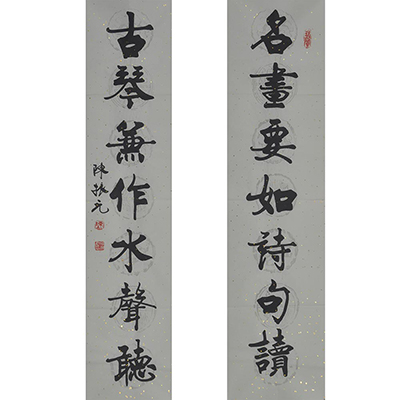 名畫要如詩句讀
古琴兼作水聲聽
陳振元